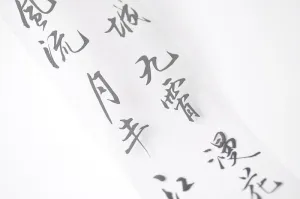 城九霄漫花
風流月